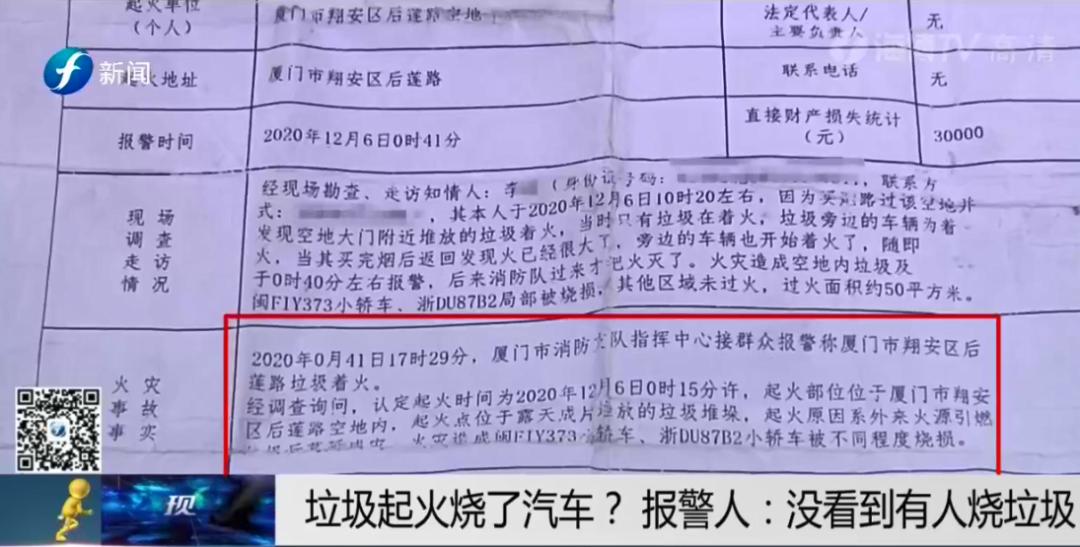 起火单位
(个人)
厦门市翔安区后莲路空地
法定代表人/
主要负责人
无
新闻
海博TV 高清
起火地址
厦门市翔安区后莲路
联系电话
无
报警时间
2020年12月6日0时41分
直接财产损失统计
(元)
30000
现场
调查
走访
情况
经现场勘查、走访知情人:李 (身份证号码: ,联系方
式: ,其本人于2020年12月6日10时20左右,因为买烟路过该空地并
发现空地大门附近堆放的垃圾着火,当时只有垃圾在着火,垃圾旁边的车辆为着
火,当其买完烟后返回发现火已经很大了,旁边的车辆也开始着火了,随即
于0时40分左右报警,后来消防队过来才把火灭了。火灾造成空地内垃圾及
闽FIY373小轿车、浙DU87B2局部被烧损,其他区域未过火,过火面积约50平方米。
火灾
事故
事实
2020年0月41日17时29分,厦门市消防支队指挥中心接群众报警称厦门市翔安区后
莲路垃圾着火。
经调查询问,认定起火时间为2020年12月6日0时15分许,起火部位位于厦门市翔安
区后莲路空地内,起火点位于露天成片堆放的垃圾堆垛,起火原因系外来火源引燃
火灾造成闽FIY373小轿车、浙DU87B2小轿车被不同程度烧损。
现
垃圾起火烧了汽车? 报警人:没看到有人烧垃圾